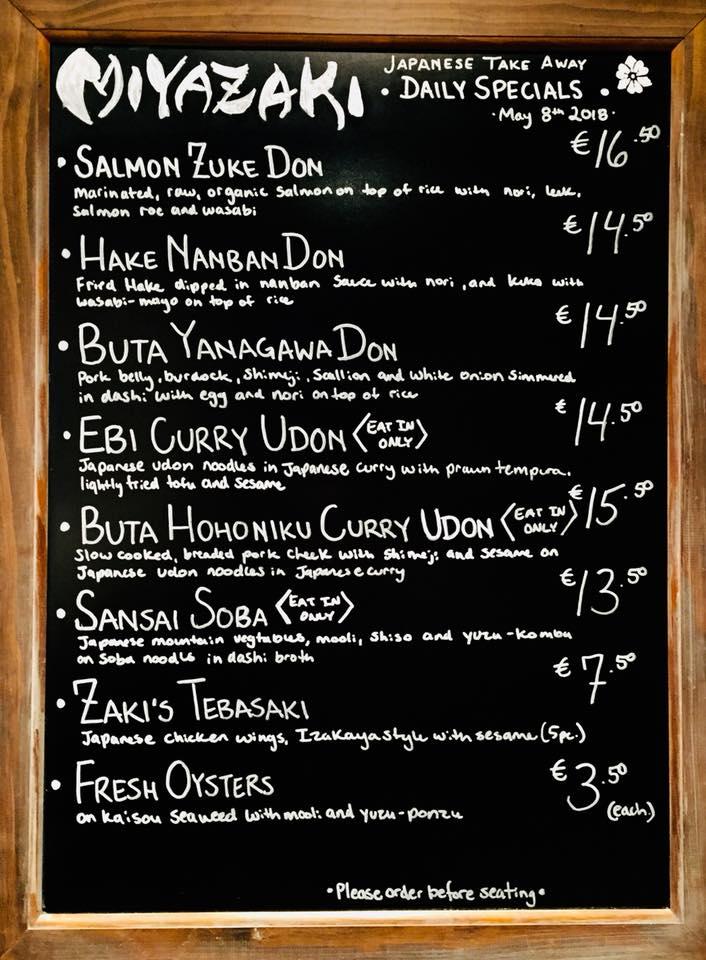 MIYAZAKI
JAPANESE TAKE AWAY
• DAILY SPECIALS •
• May 8th 2018 •
• SALMON ZUKE DON €16.50
Marinated, raw, organic Salmon on top of rice with nori, leek,
Salmon roe and wasabi
• HAKE NANBAN DON €14.50
Fried Hake dipped in nanban sauce with nori, and kuko with
wasabi-mayo on top of rice
• BUTA YANAGAWA DON €14.50
Pork belly, burdock, Shimeji, Scallion and White onion Simmered
in dashi with egg and nori on top of rice
• EBI CURRY UDON <EAT IN ONLY> €14.50
Japanese udon noodles in Japanese curry with prawn tempura,
lightly fried tofu and Sesame
• BUTA HOHONIKU CURRY UDON <EAT IN ONLY> €15.50
Slow cooked, breaded pork cheek with Shimeji and Sesame on
Japanese udon noodles in Japanese curry
• SANSAI SOBA <EAT IN ONLY> €13.50
Japanese mountain vegtables, mooli, Shiso and yuzu-kombu
on Soba noodles in dashi broth
• ZAKI'S TEBASAKI €7.50
Japanese chicken wings, Izakaya style with sesame (5pc.)
• FRESH OYSTERS €3.50
on Kaisou Seaweed with mooli and yuzu-ponzu (each)
• Please order before seating •